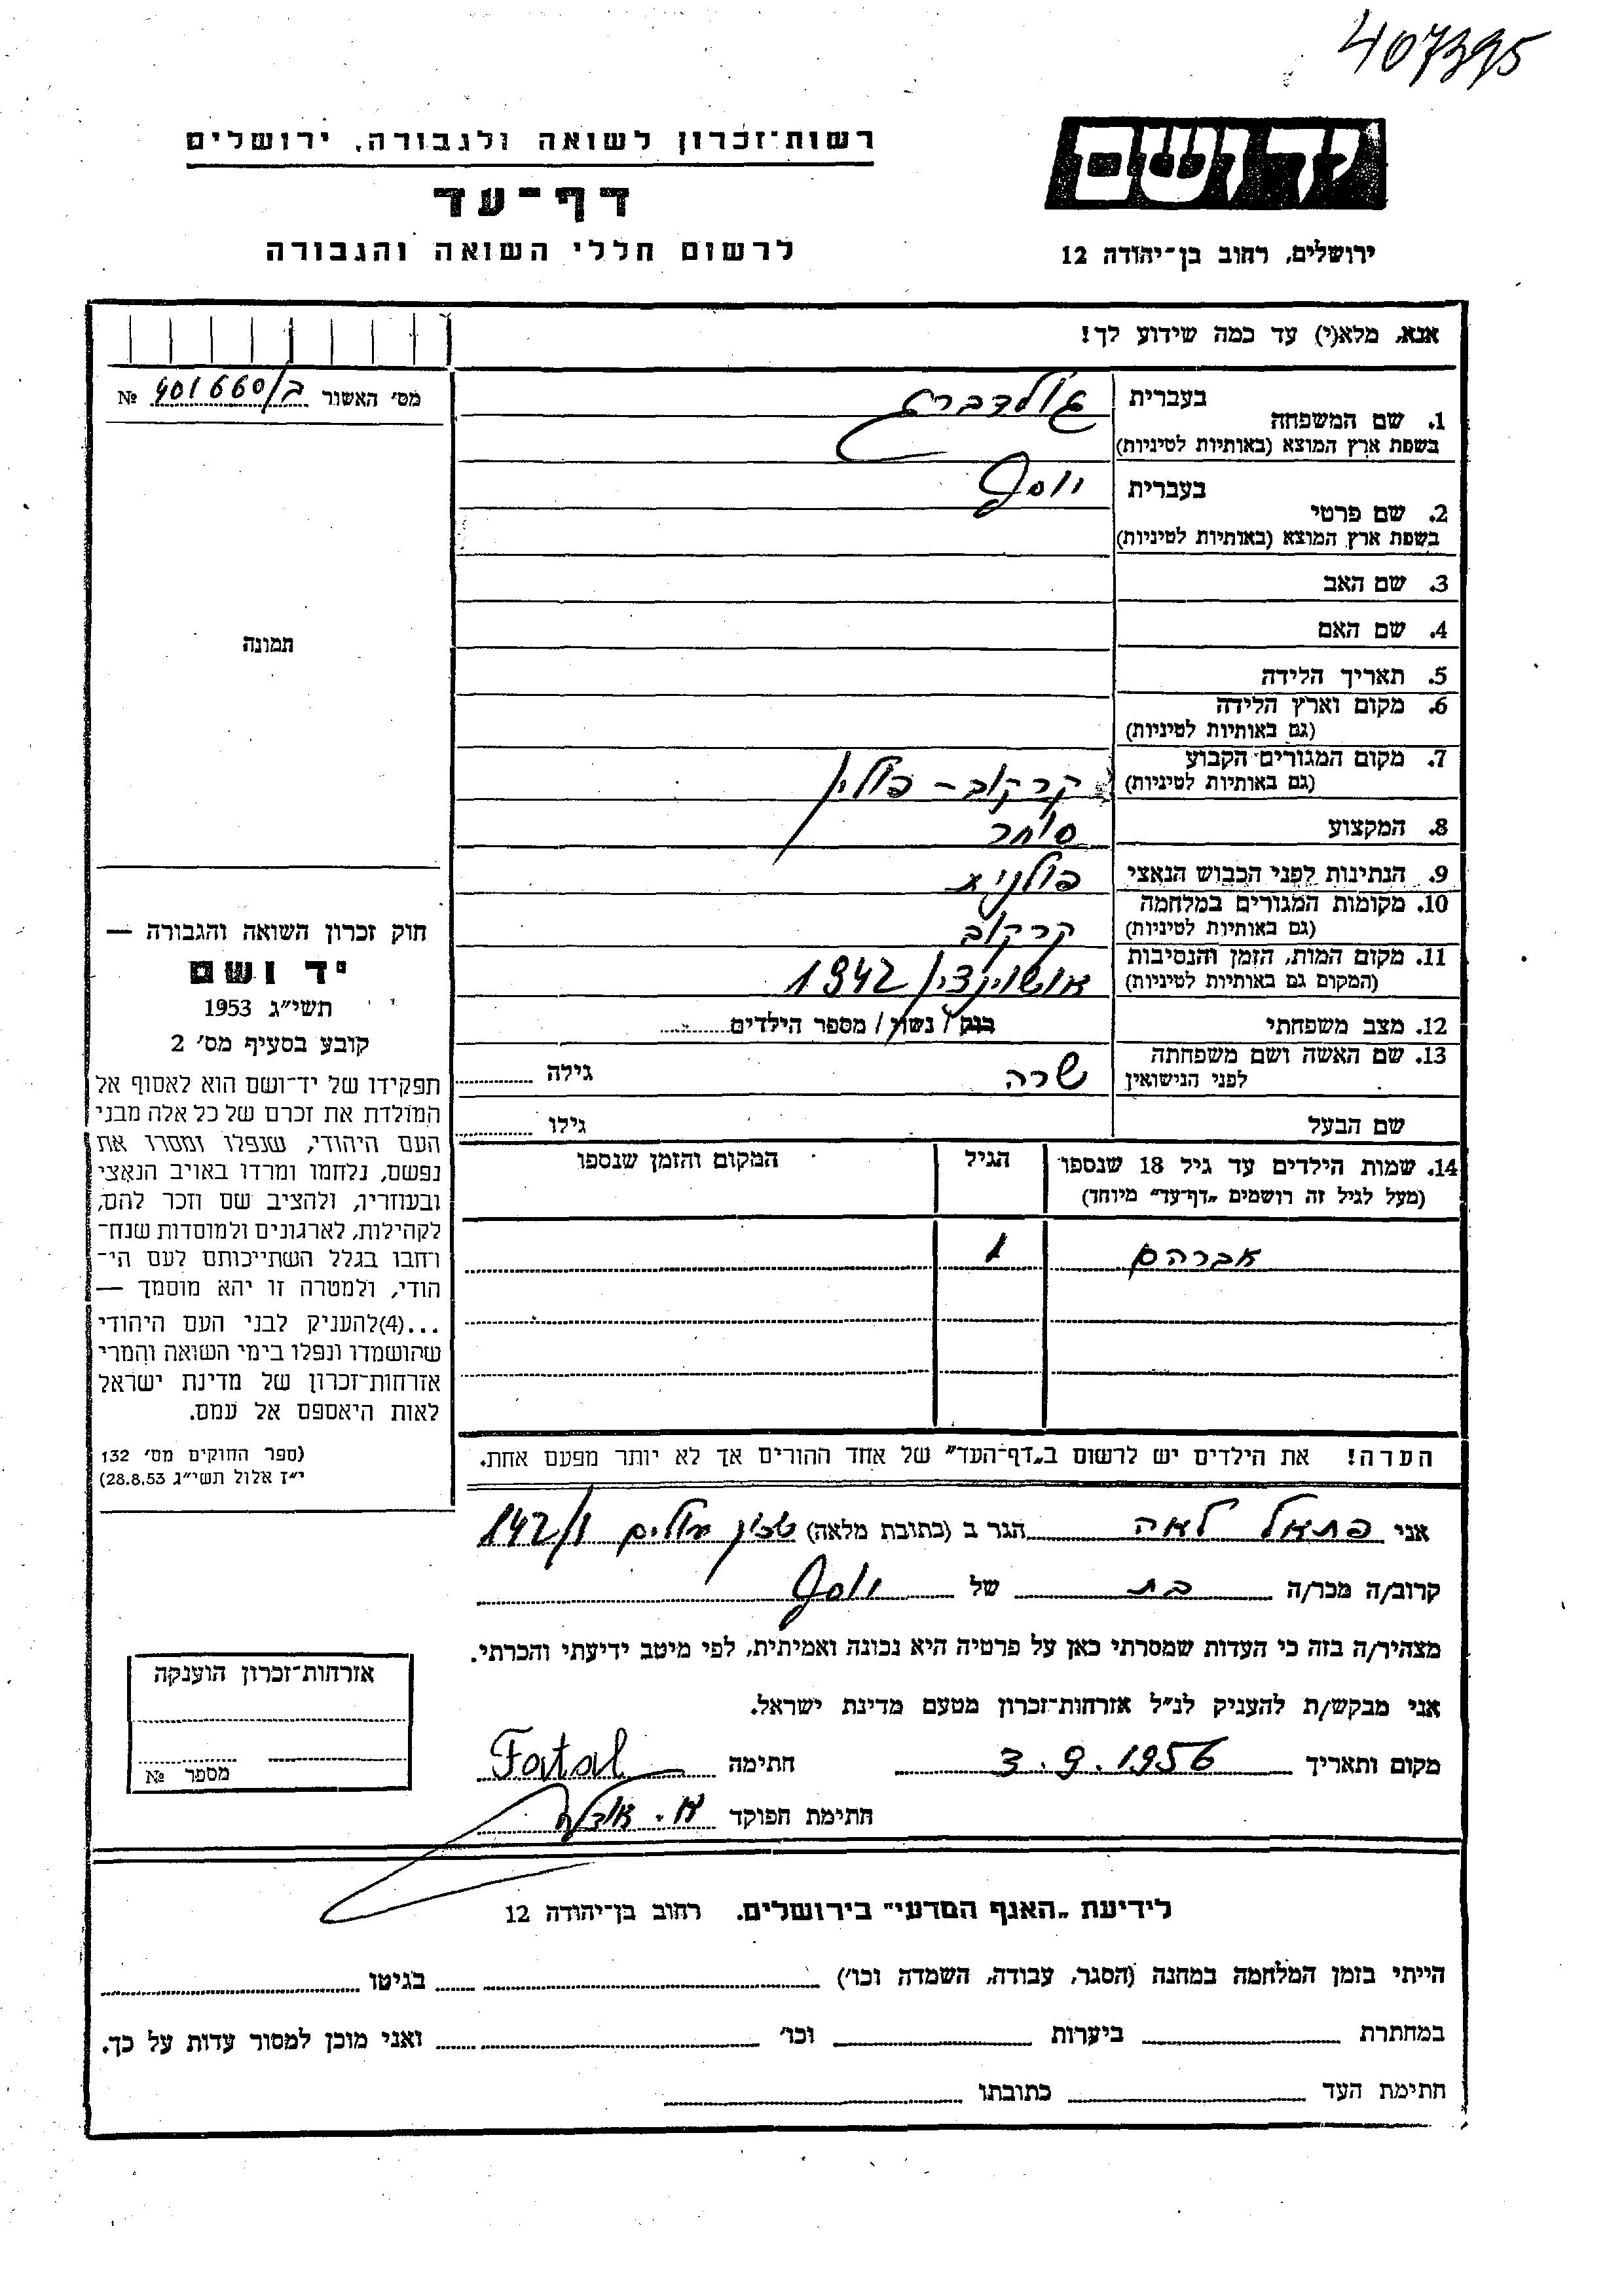 407395
יד ושם
רשות־זכרון לשואה ולגבורה, ירושלים
דף־עד
לרשום חללי השואה והגבורה
ירושלים, רחוב בן־יהודה 12
אנא, מלא(י) עד כמה שידוע לך!
מס׳ האשור ב/401660 №
1. שם המשפחה
בעברית גולדברג
בשפת ארץ המוצא (באותיות לטיניות)
2. שם פרטי
בעברית יוסף
בשפת ארץ המוצא (באותיות לטיניות)
3. שם האב
4. שם האם
5. תאריך הלידה
6. מקום וארץ הלידה
(גם באותיות לטיניות)
7. מקום המגורים הקבוע קרקוב – פולין
(גם באותיות לטיניות)
8. המקצוע סוחר
9. הנתינות לפני הכבוש הנאצי פולנית
10. מקומות המגורים במלחמה קרקוב
(גם באותיות לטיניות)
11. מקום המות, הזמן והנסיבות אושוינצין 1942
(המקום גם באותיות לטיניות)
12. מצב משפחתי רווק / נשוי / מספר הילדים
13. שם האשה ושם משפחתה שרה גילה
לפני הנישואין
שם הבעל גילו
14. שמות הילדים עד גיל 18 שנספו הגיל המקום והזמן שנספו
(מעל לגיל זה רושמים „דף־עד” מיוחד)
אברהם 1
הערה! את הילדים יש לרשום ב„דף־העד” של אחד ההורים אך לא יותר מפעם אחת.
תמונה
חוק זכרון השואה והגבורה —
יד ושם
תשי״ג 1953
קובע בסעיף מס׳ 2
תפקידו של יד־ושם הוא לאסוף אל
המולדת את זכרם של כל אלה מבני
העם היהודי, שנפלו ומסרו את
נפשם, נלחמו ומרדו באויב הנאצי
ובעוזריו, ולהציב שם וזכר להם,
לקהילות, לארגונים ולמוסדות שנח־
רחבו בגלל השתייכותם לעם הי־
הודי, ולמטרה זו יהא מוסמך —
...(4)להעניק לבני העם היהודי
שהושמדו ונפלו בימי השואה והמרי
אזרחות־זכרון של מדינת ישראל
לאות היאספם אל עמם.
(ספר החוקים מס׳ 132
י״ז אלול תשי״ג 28.8.53)
אני פתאל לאה הגר ב (כתובת מלאה) שכון עולים 142/1
קרוב/ה מכר/ה בת של יוסף
מצהיר/ה בזה כי העדות שמסרתי כאן על פרטיה היא נכונה ואמיתית, לפי מיטב ידיעתי והכרתי.
אני מבקש/ת להעניק לנ״ל אזרחות־זכרון מטעם מדינת ישראל.
מקום ותאריך 3.9.1956 חתימה Fatal
חתימת הפוקד
אזרחות־זכרון הוענקה
מספר №
לידיעת „האגף המדעי” בירושלים. רחוב בן־יהודה 12
הייתי בזמן המלחמה במחנה (הסגר, עבודה, השמדה וכו׳) בגיטו
במחתרת ביערות וכו׳ ואני מוכן למסור עדות על כך.
חתימת העד כתובתו